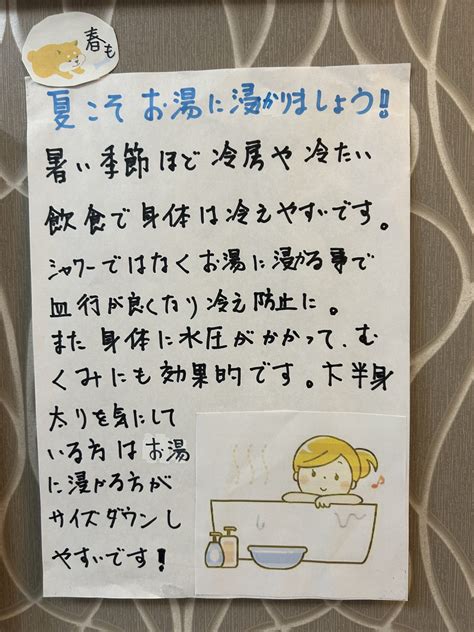 春も
夏こそお湯に浸かりましょう!!
暑い季節ほど冷房や冷たい
飲食で身体は冷えやすいです。
シャワーではなくお湯に浸かる事で
血行が良くなり冷え防止に。
また身体に水圧がかかって、む
くみにも効果的です。下半身
太りを気にして
いる方はお湯
に浸かる方が
サイズダウンし
やすいです!